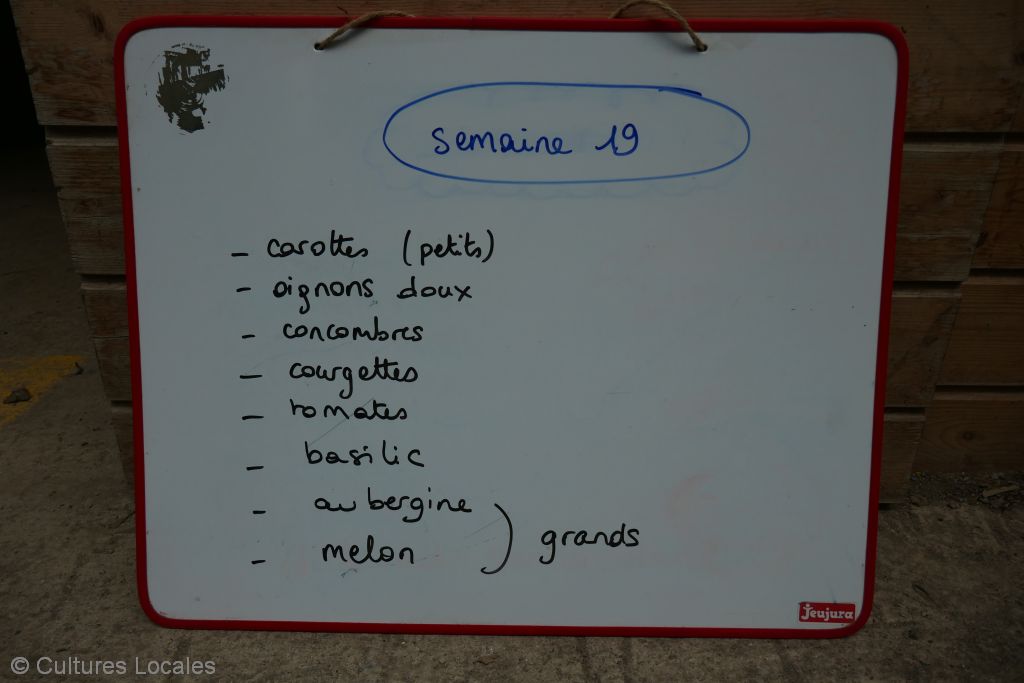 semaine 19
- carottes (petits)
- oignons doux
- concombres
- courgettes
- tomates
- basilic
- aubergine
- melon
) grands
Jeujura
© Cultures Locales